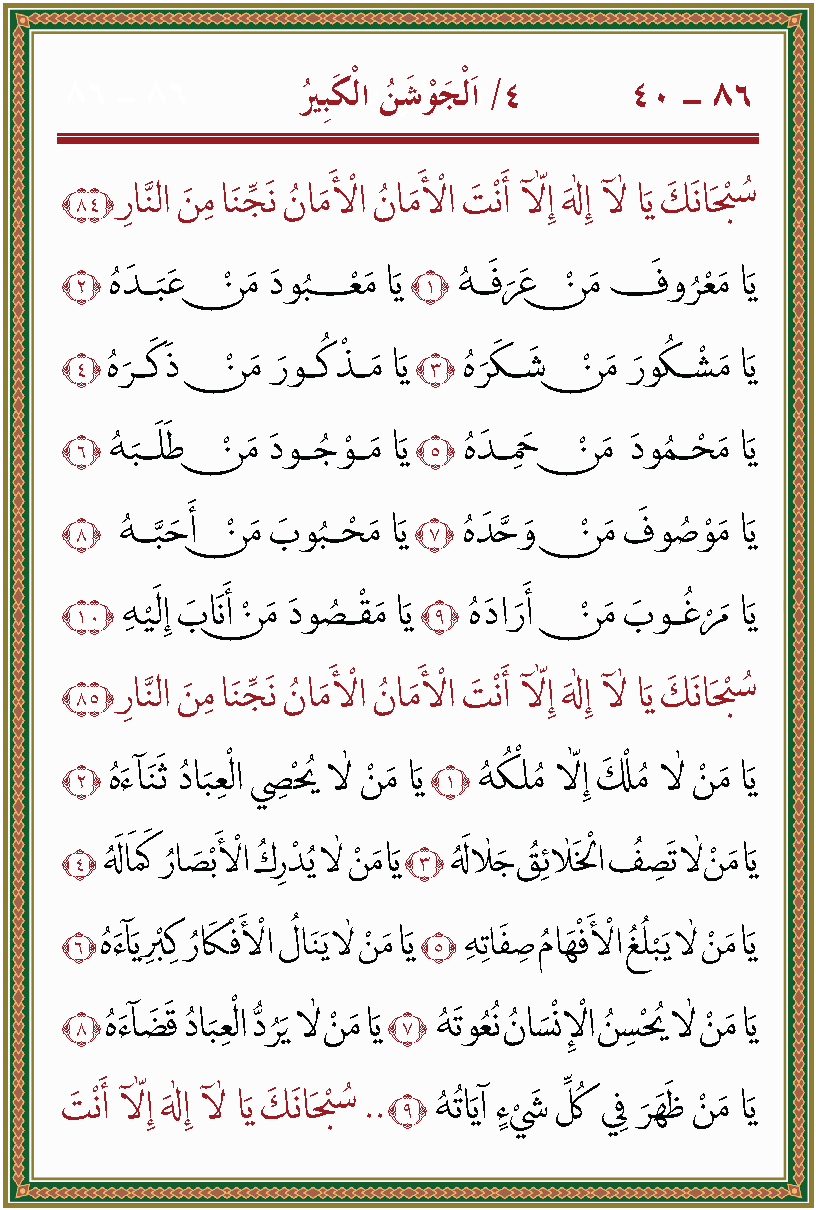 ٨٦ – ٤٠ ٤/ اَلْجَوْشَنُ الْكَبِيرُ ٨٦ – ٨٦
سُبْحَانَكَ يَا لَآ إِلٰهَ إِلَّآ أَنْتَ الْأَمَانُ الْأَمَانُ نَجِّنَا مِنَ النَّارِ ﴿٨٤﴾
يَا مَعْرُوفَ مَنْ عَرَفَهُ ﴿١﴾ يَا مَعْبُودَ مَنْ عَبَدَهُ ﴿٢﴾
يَا مَشْكُورَ مَنْ شَكَرَهُ ﴿٣﴾ يَا مَذْكُورَ مَنْ ذَكَرَهُ ﴿٤﴾
يَا مَحْمُودَ مَنْ حَمِدَهُ ﴿٥﴾ يَا مَوْجُودَ مَنْ طَلَبَهُ ﴿٦﴾
يَا مَوْصُوفَ مَنْ وَحَّدَهُ ﴿٧﴾ يَا مَحْبُوبَ مَنْ أَحَبَّهُ ﴿٨﴾
يَا مَرْغُوبَ مَنْ أَرَادَهُ ﴿٩﴾ يَا مَقْصُودَ مَنْ أَنَابَ إِلَيْهِ ﴿١٠﴾
سُبْحَانَكَ يَا لَآ إِلٰهَ إِلَّآ أَنْتَ الْأَمَانُ الْأَمَانُ نَجِّنَا مِنَ النَّارِ ﴿٨٥﴾
يَا مَنْ لَا مُلْكَ إِلَّا مُلْكُهُ ﴿١﴾ يَا مَنْ لَا يُحْصِي الْعِبَادُ ثَنَآءَهُ ﴿٢﴾
يَا مَنْ لَا تَصِفُ الْخَلَائِقُ جَلَالَهُ ﴿٣﴾ يَا مَنْ لَا يُدْرِكُ الْأَبْصَارُ كَمَالَهُ ﴿٤﴾
يَا مَنْ لَا يَبْلُغُ الْأَفْهَامُ صِفَاتِهِ ﴿٥﴾ يَا مَنْ لَا يَنَالُ الْأَفْكَارُ كِبْرِيَآءَهُ ﴿٦﴾
يَا مَنْ لَا يُحْسِنُ الْإِنْسَانُ نُعُوتَهُ ﴿٧﴾ يَا مَنْ لَا يَرُدُّ الْعِبَادُ قَضَآءَهُ ﴿٨﴾
يَا مَنْ ظَهَرَ فِي كُلِّ شَيْءٍ آيَاتُهُ ﴿٩﴾.. سُبْحَانَكَ يَا لَآ إِلٰهَ إِلَّآ أَنْتَ